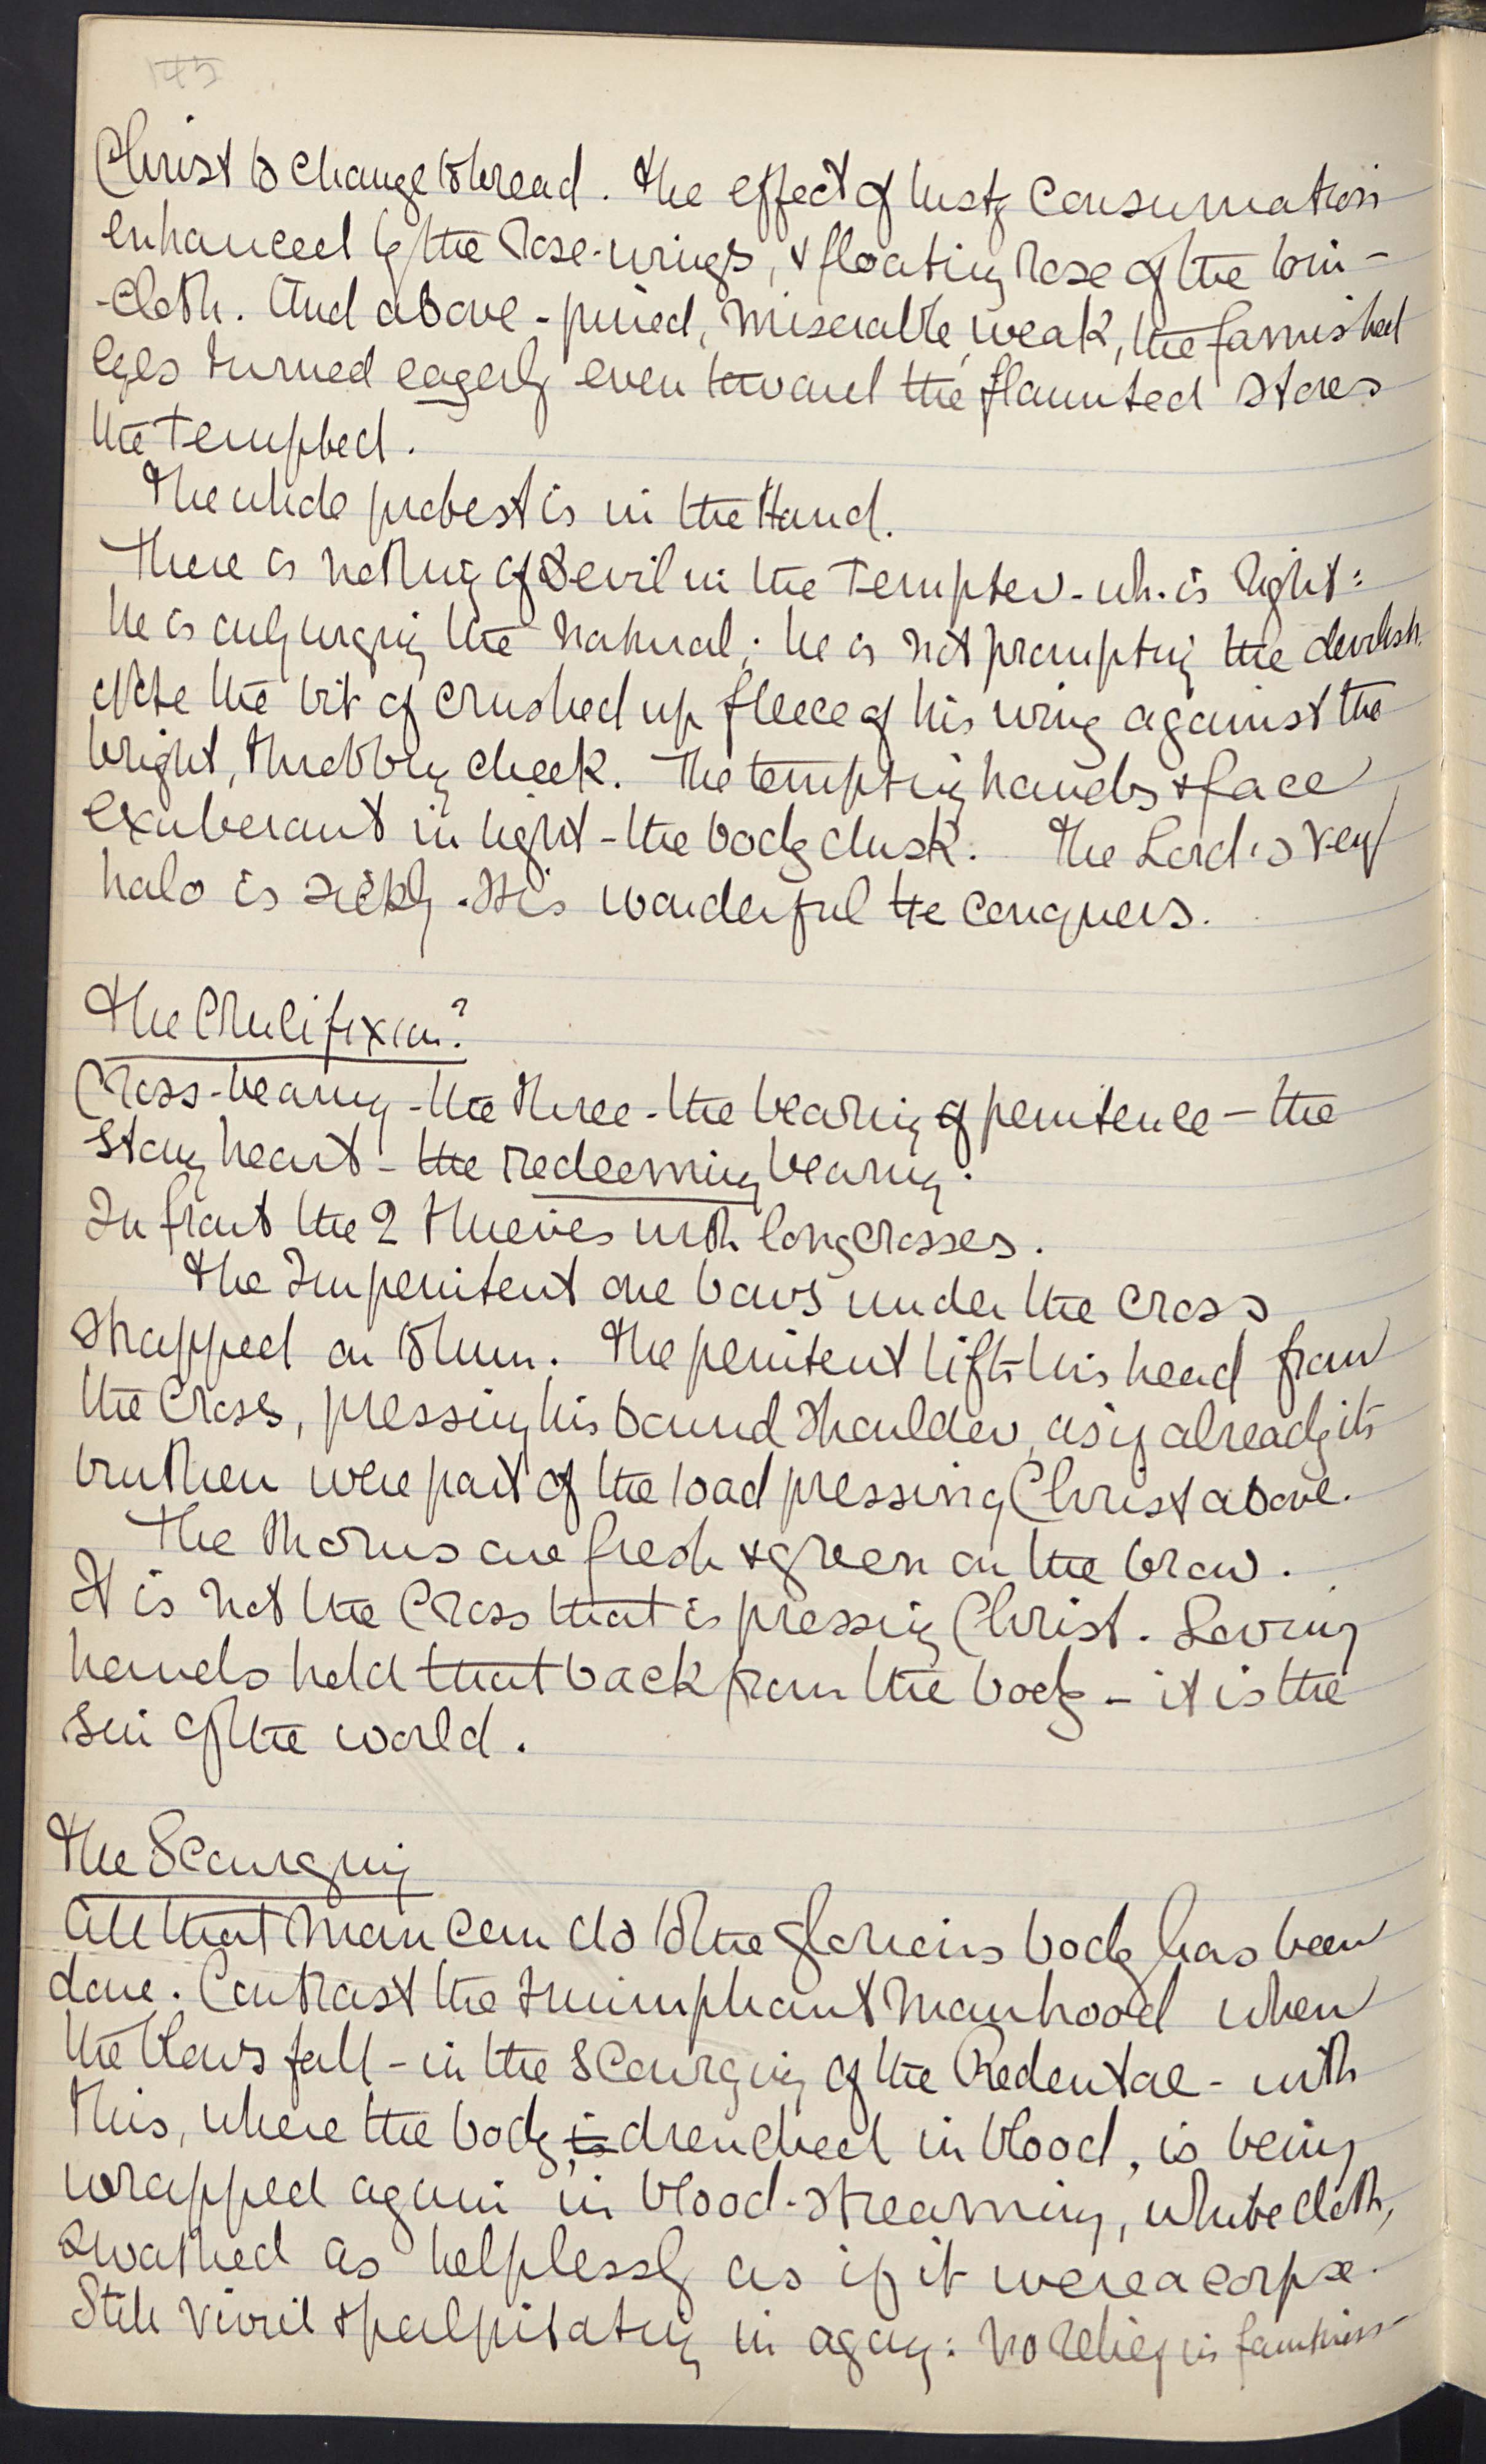 145
Christ to change to bread. The effect of lusty consumation
enhanced by the rose-wings, & floating rose of the loin-
-cloth. And above - pined, miserable, weak, the famished
eyes turned eagerly even toward the flaunted stores
the tempted.
The whole protest is in the Hand.
There is nothing of Devil in the Tempter - wh. is right:
he is only urging the natural; he is not prompting the devilish.
Note the bit of crushed up fleece of his wing against the
bright, throbbing cheek. The tempting hands & face
exuberant in light - the body dusk. The Lord's very
halo is sickly. It is wonderful He conquers.
The Crucifixion?
Cross-bearing - the three - the bearing of penitence - the
stony heart - the redeeming bearing.
In front the 2 thieves with long crosses.
The Impenitent one bows under the cross
strapped on to him. The penitent lifts his head from
the Cross, pressing his bound shoulder, as if already its
burthen were part of the load pressing Christ above.
The thorns are fresh & green on the brow.
It is not the Cross that is pressing Christ. Loving
hands hold that back from the body - it is the
sin of the world.
The Scourging
All that man can do to the glorious body has been
done. Contrast the triumphant manhood when
the blows fall - in the scourging of the Redentore - with
this, where the body, is drenched in blood, is being
wrapped again in blood-streaming, white cloth,
swathed as helplessly as if it were a corpse.
Still virile & palpitating in agony: no relief in faintness